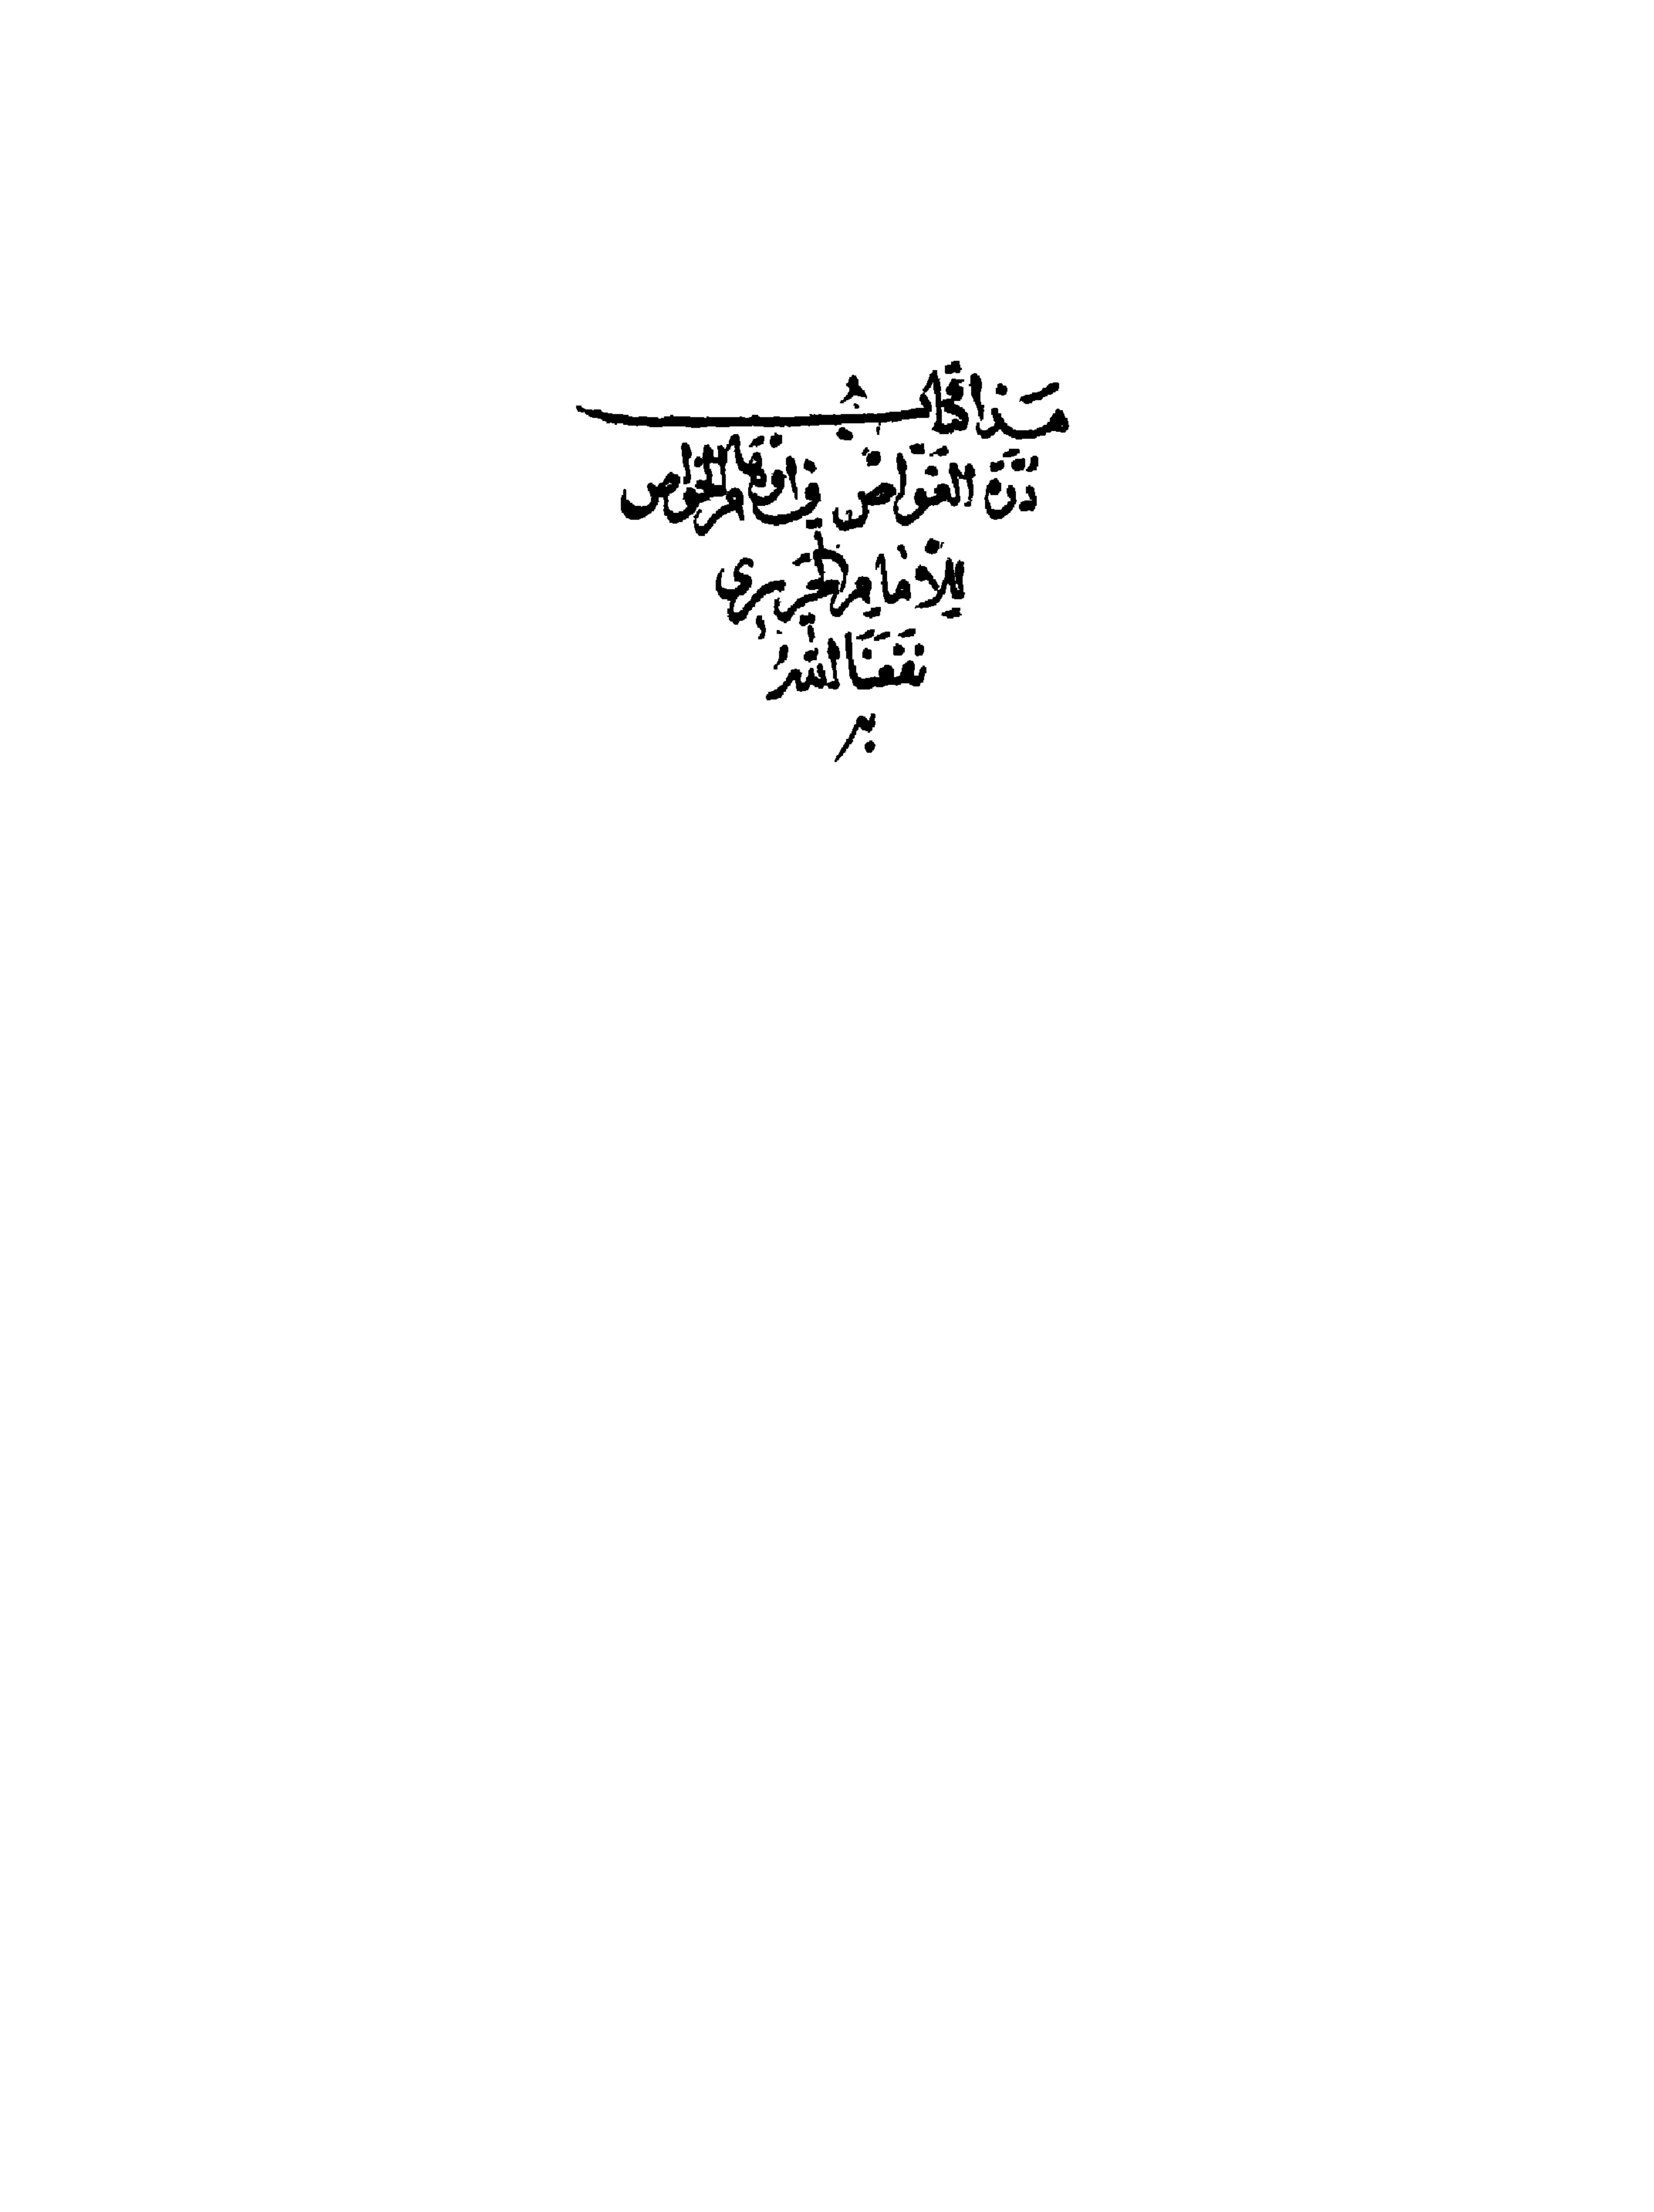 هَذَا كِتَابُ
دُرَّةِ الغَوَّاصِ فِي أَوْهَامِ الخَوَاصِ
لِلإِمَامِ الحَرِيرِي
نَفَعَنَا اللهُ
بِهِ